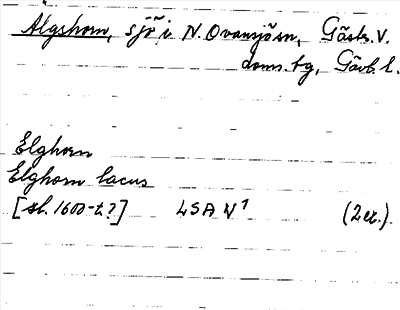 Älgshorn, sjö i N. Ovansjösn, Gästr. V.
doms. tg, Gävb. l.
Elghorn
Elghorn lacus
[sl. 1600-t.?] LSA V 1 (2 ex.).